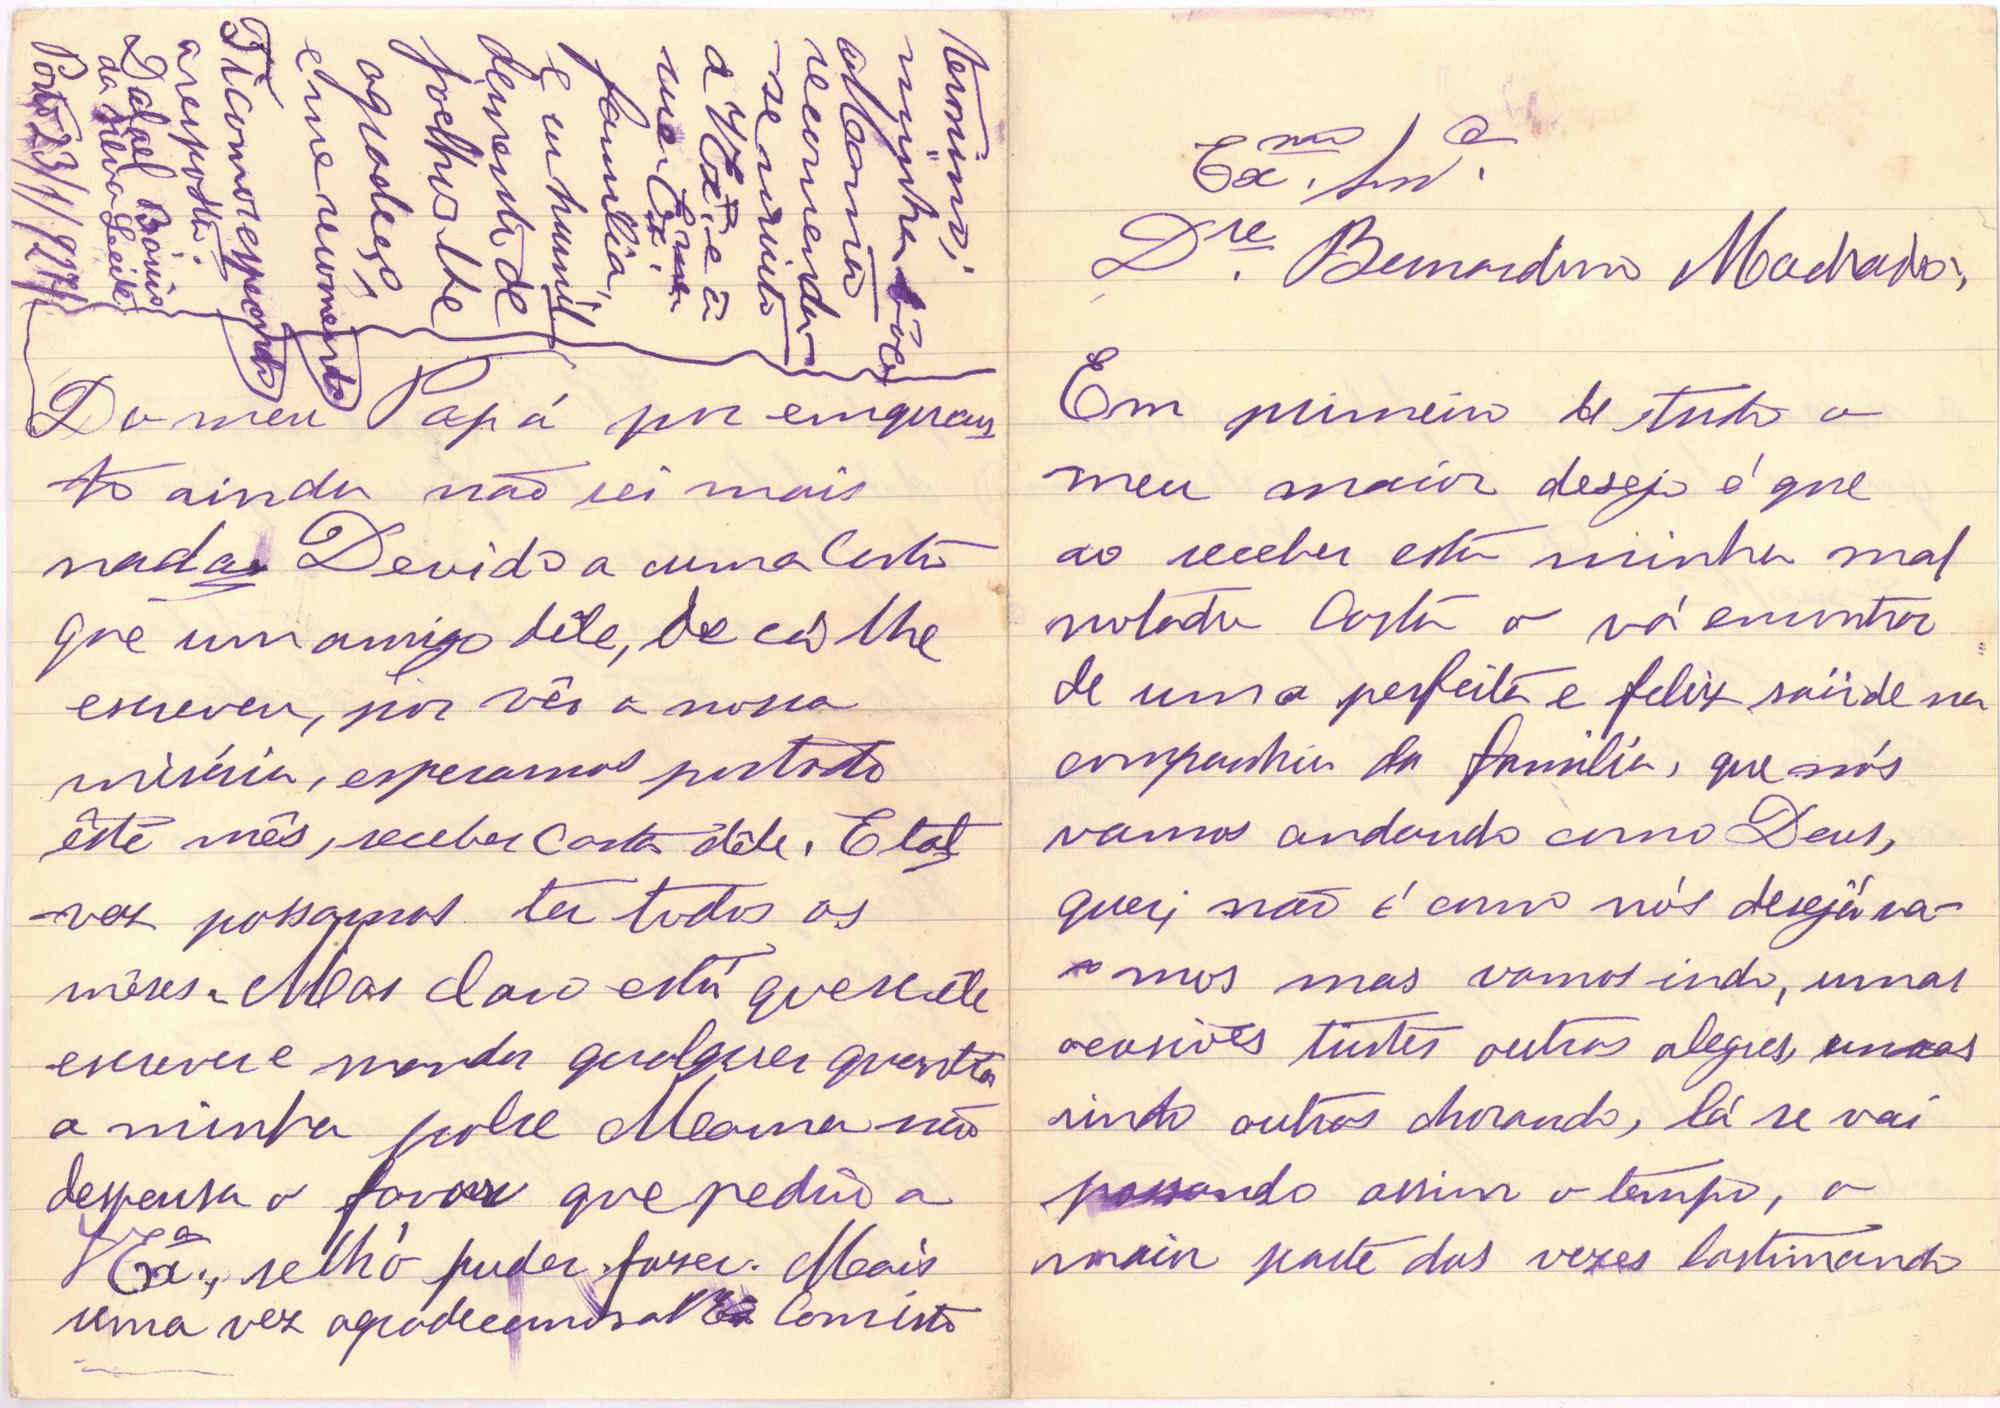 Exmo. Snr.
Dre. Bernardino Machado,
Em primeiro de tudo o
meu maior desejo é que
ao receber esta minha mal
notada Carta o vá encontrar
de uma perfeita e feliz saúde na
companhia da família, que nós
vamos andando como Deus,
quer, não é como nós desejáva-
-mos mas vamos indo, umas
ocasiões tristes outras alegres, umas
rindo outras chorando, lá se vai
passando assim o tempo, a
maior parte das vezes lastimando
Do meu Papá por emquan
to ainda não sei mais
nada. Devido a uma Carta
que um amigo dêle, de cá lhe
escreveu, por vêr a nossa
miséria, esperamos por todo
êste mês, receber Carta dêle. E tal
-vez possamos ter todos os
mêses. Mas claro está que se êle
escrever e mandar qualquer quantia
a minha pobre Mamã não
despensa o favor que pediu a
V Exa., se lhó puder fazer. Mais
uma vez agradecemos a V Exa Com isto
termino,
minha
a Mamã
recomenda
-se muito
a V Exa. e à
sua Exma.
família,
e eu humil
demente de
joelhos lhe
agradeço,
e me recomendo
Fico
a resposta.
da Silva Leite
Porto 23/1/927